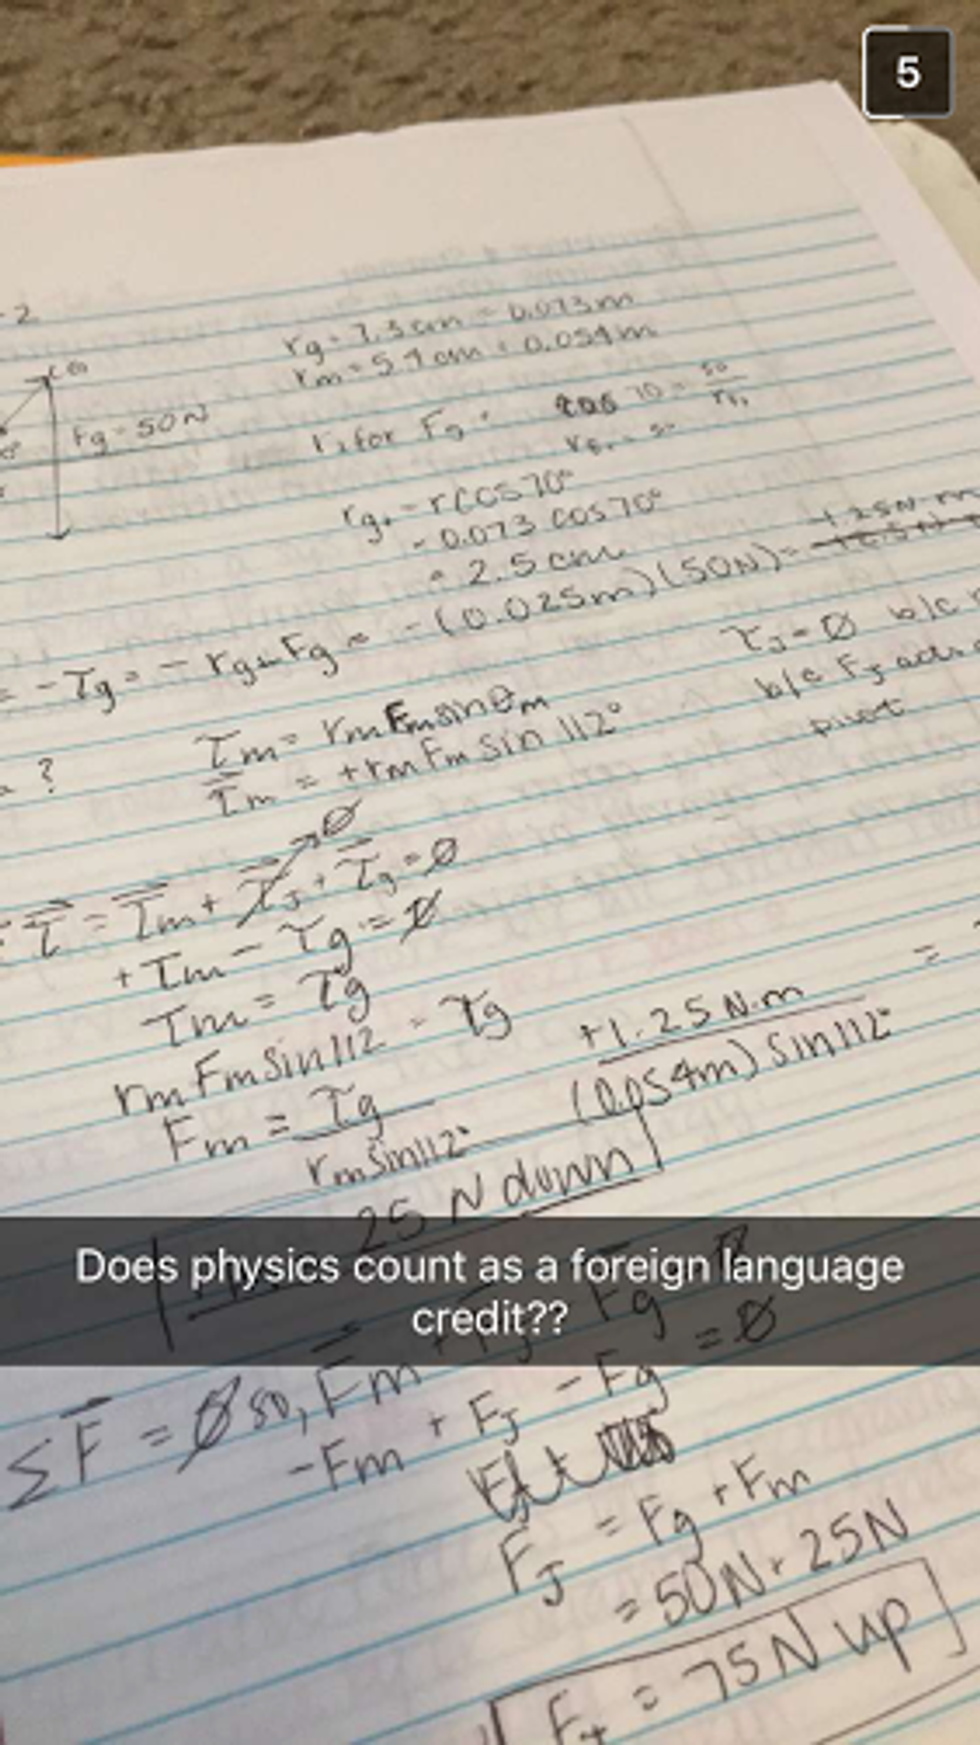 5
-2
rg = 7.3 cm = 0.073m
rm = 5.4 cm = 0.054m
Fg = 50N
r⊥ for Fg:
cos 70 = 50
rg⊥ = r cos 70°
= 0.073 cos 70°
= 2.5 cm
= -τg = - rg⊥Fg = -(0.025m)(50N) = -1.25 N·m
τJ = Ø b/c
b/c FJ acts
pivot
?
τm = rmFmsinθm
τm = +rmFm sin 112°
Ø
τ = τm + τJ + τg = Ø
+τm - τg = Ø
τm = τg
rmFmsin112 = τg
Fm = τg / rmsin112°
+1.25 N·m / (0.054m) sin112° =
25 N down
Does physics count as a foreign language
credit??
ΣF = Ø so, Fm + FJ Fg = Ø
-Fm + FJ - Fg
FJ = Fg + Fm
= 50N + 25N
FJ = 75N up